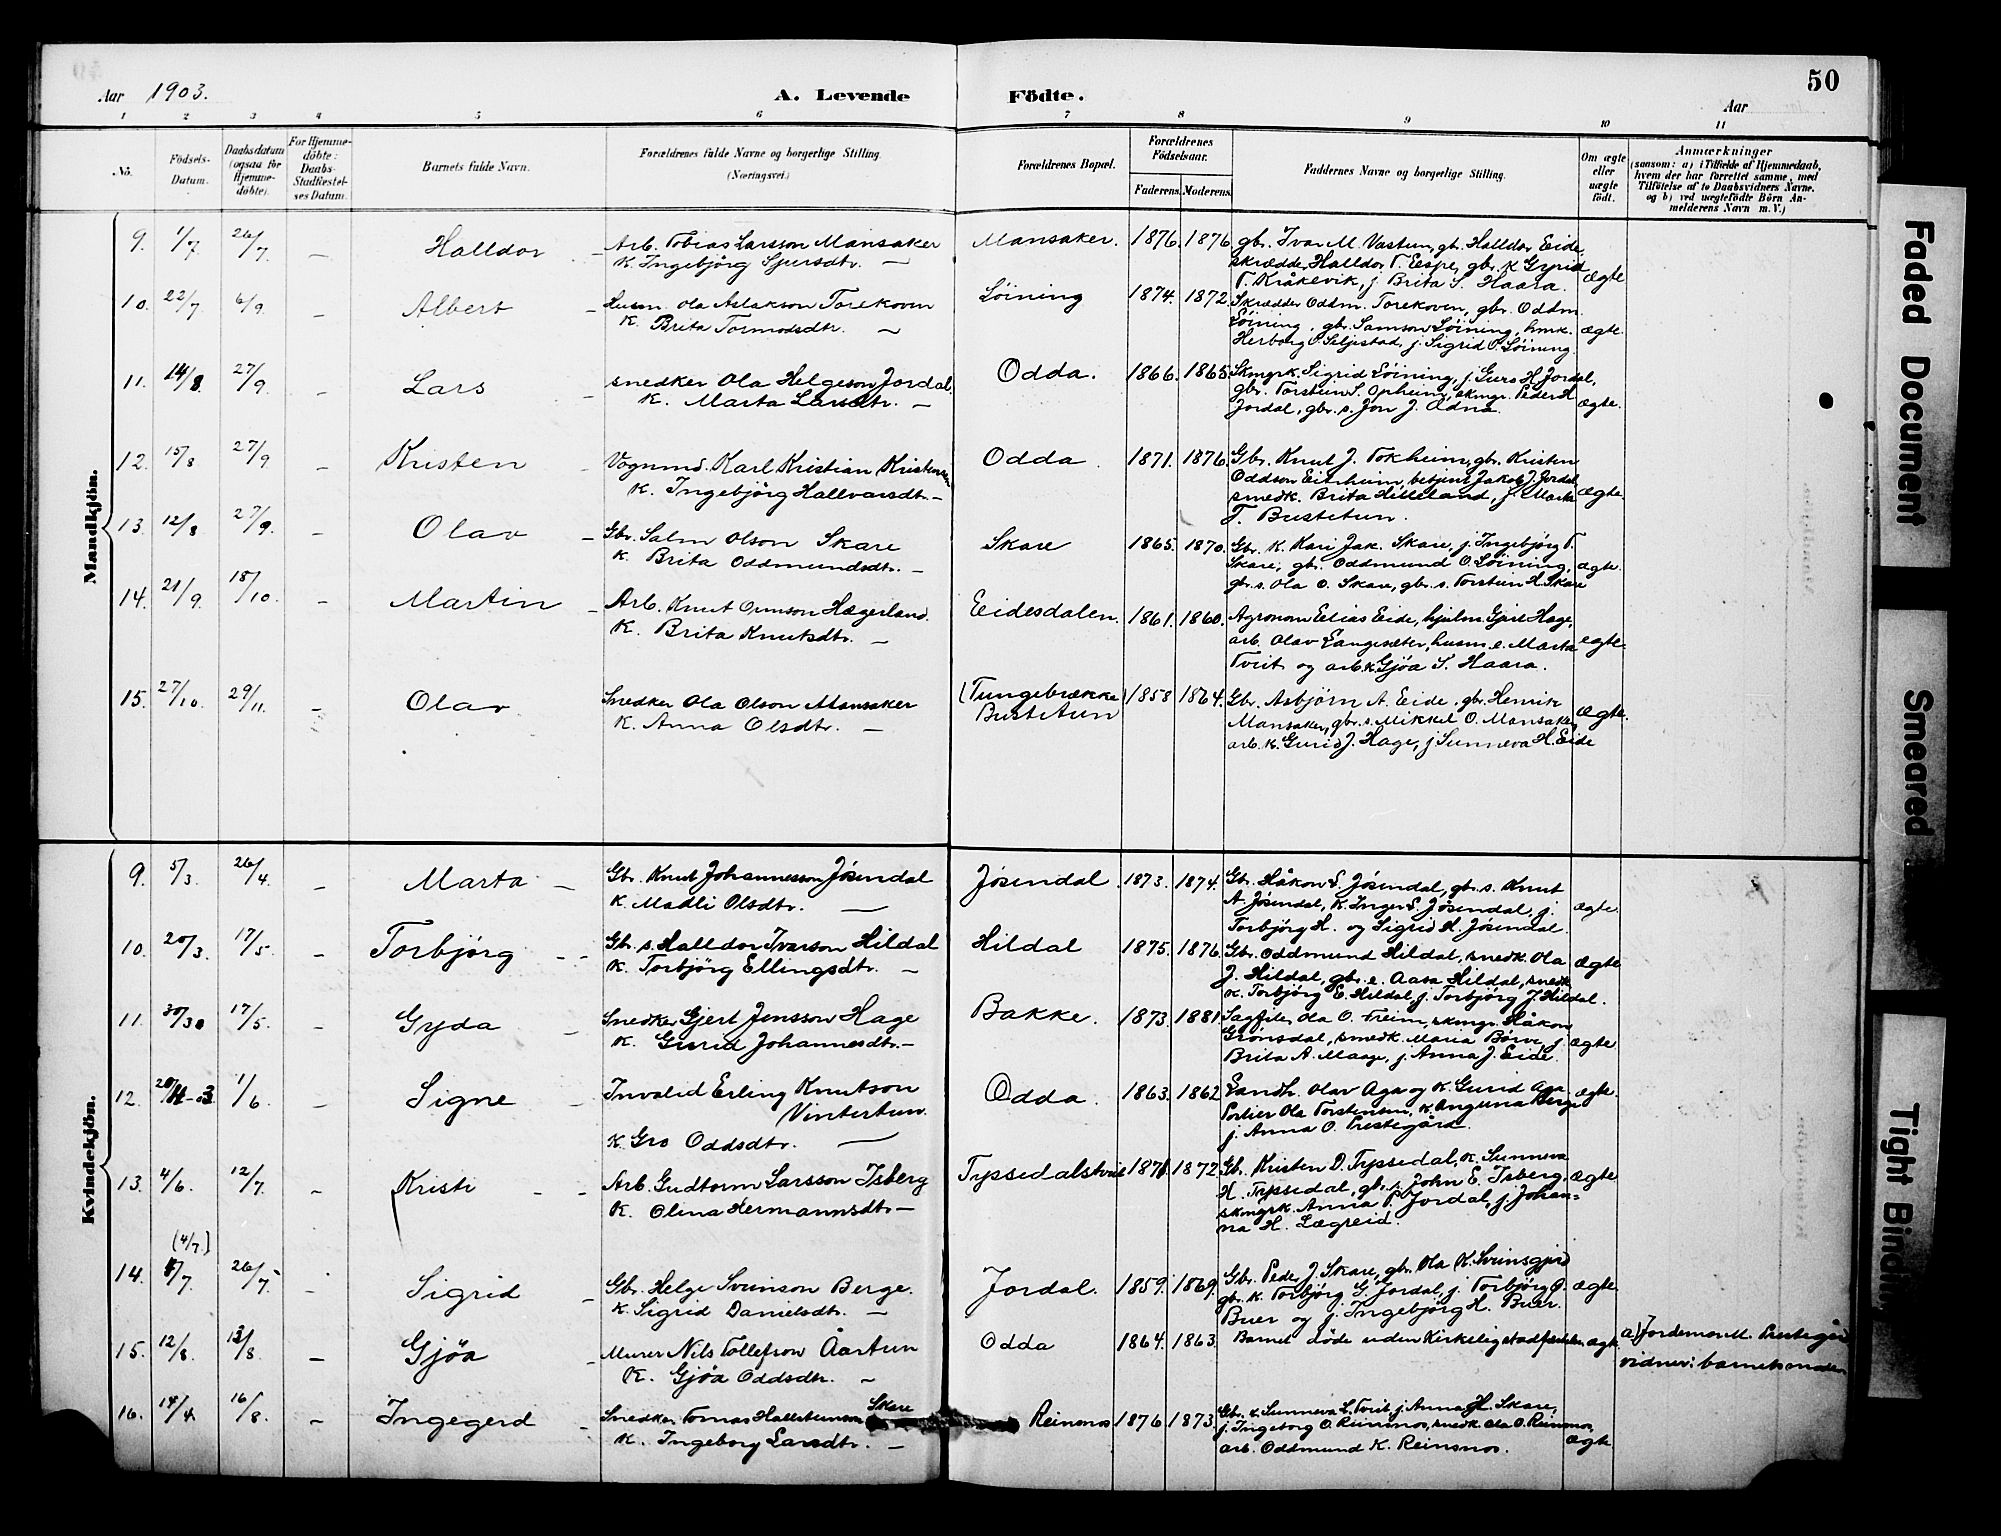 50
Aar 1903.
A. Levende Födte.
Aar
1 2 3 4 5 6 7 8 9 10 11
No.
Födsels-Datum.
Daabsdatum (ogsaa for Hjemme-döbte).
For Hjemme-döbte: Daabs-Stadfæstel-ses Datum.
Barnets fulde Navn.
Forældrenes fulde Navne og borgerlige Stilling. (Næringsvei.)
Forældrenes Bopæl.
Forældrenes Födselsaar.
Faderens. Moderens.
Faddernes Navne og borgerlige Stilling.
Om ægte eller uægte födt.
Anmærkninger
(saasom: a) i Tilfælde af Hjemmedaab,
hvem der har forrettet samme, med
Tilföielse af to Daabsvidners Navne.
og b) ved uægtefödte Börn An-
melderens Navn m. V.)
Mandkjön.
9. 1/7 26/7 – Halldor – Arb. Tobias Larsson Mansaker
K. Ingebjörg Sjursdtr. –
Mansaker. 1876. 1876. gbr. Ivar M. Vastun, gbr. Halldor Eide,
skrædde, Halldor T. Espe, gbr. K Gyrid
T. Kråkevik, j. Brita S. Haara. ægte
10. 22/7 6/9 – Albert – Husm. Ola Aslakson Torekoven
K. Brita Tormodsdtr. –
Löining 1874. 1872. Skrædder Oddm. Torekoven, gbr. Oddm.
Löining, gbr. Samson Löining, hmk.
Herborg O. Seljestad, j. Sigrid O. Löining. ægte.
11. 14/8. 27/9. – Lars – snedker Ola Helgeson Jordal.
K. Marta Larsdtr. –
Odda. 1866. 1865. Skmgrk. Sigrid Löining, j. Guro H. Jordal,
gbr. Torstein S. Opheim, skmgr. Peder H
Jordal, gbr. s. Jon J. Ædna. ægte.
12. 15/8 27/9 – Kristen – Vognmd. Karl Kristian Kristensen
K. Ingebjörg Hallvarsdtr. –
Odda. 1871. 1876. Gbr. Knut J. Tokheim, gbr. Kristen
Oddson Eitrheim, betjent Jakob J. Jordal
smedk. Brita Hilleland, j. Marta
T. Bustetun. ægte.
13. 12/8 27/9. – Olav – Gbr. Salm Olson Skare
K. Brita Oddmundsdtr. –
Skare 1865. 1870. Gbr. K. Kari Jak. Skare, j. Ingebjörg T.
Skare, gbr. Oddmund O. Löining,
gbr. s. Ola O. Skare, gbr. s. Torstein H. Skare ægte.
14. 21/9. 18/10. – Martin – Arb. Knut Ormson Hægerland.
K. Brita Knutsdtr. –
Eidesdalen. 1861. 1860. Agronom Eelias Eide, hjulm. Gjert Hage,
arb. Olav Langesæter, husm. e. Marta
Tveit og arb. k. Gjöa S. Haara. egte
15. 27/10. 29/11. – Olav. Snedker Ola Olson Mansaker
K. Anna Olsdtr. –
(Tungebrække)
Bustetun 1858 1864. Gbr. Asbjörn A. Eide, gbr. Henrik
Mansaker, gbr. s. Mikkel O. Mansaker,
arb. k. Gurid J. Hage, j. Sunneva H. Eide ægte.
Kvindekjön.
9. 5/3. 26/4. – Marta – Gbr. Knut Johannesson Jösendal
K. Madli Olsdtr. –
Jösendal. 1873. 1874. Gbr. Håkon S. Jösendal, gbr. s. Knut
A. Jösendal, K. Inger S. Jösendal, j.
Torbjörg H. og Sigrid H. Jösendal. ægte.
10. 20/3. 17/5. – Torbjörg – Gbr. s. Halldor Ivarson Hildal
K. Torbjörg Ellingsdtr. –
Hildal 1875. 1876. Gbr. Oddmund Hildal, smedk. Ola
J. Hildal, gbr. e. Aasa Hildal, snedk.
K. Torbjörg E. Hildal, j. Torbjörg J. Hildal. ægte
11. 30/30 17/5. – Gyda – Snedker Gjert Jensson Hage
K. Gurid Johannesdtr. –
Bakke. 1873. 1881. Sagfiler Ola O. Freim, skmgr. Håkon
Grönsdal, smedk. Maria Börve, j.
Brita A. Maage, j. Anna J. Eide. ægte
12. 20/4-03. 1/6. – Signe – Invalid Erling Knutson
Vintertun.
K. Gro Oddsdtr. –
Odda. 1863. 1862. Landh. Olav Aga og K. Gurid Aga
Portier Ola Torstensen, K. Anguna Berge
j. Anna O. Prestegård. ægte.
13. 4/6. 12/7. – Kristi – Arb. Gudtorm Larsson Isberg
K. Olina Hermannsdtr. –
Tyssedalstveit 1871. 1872. Gbr. Kristen D. Tyssedal, K. Sunneva
H. Tyssedal, gbr. s. John E. Isberg,
skmgrk. Anna P. Jordal, j. Johan-
na H. Lægreid. ægte
14. (4/7) 4/7. 26/7. – Sigrid – Gbr. Helge Sveinson Berge.
K. Sigrid Danielsdtr. –
Jordal. 1859. 1869. Gbr. Peder J. Skare, gbr. Ola K. Freinsgjerd
gbr. K. Torbjörg G. Jordal, j. Torbjörg G.
Buer og j. Ingebjörg H. Buer. ægte.
15. 12/8. 13/8. – Gjöa – Murer Nils Tollefson Åartun
K. Gjöa Oddsdtr. –
Odda 1864. 1863. Barnet döde uden Kirkelig stadfæstelse ægte a) Jordemor M. Prestegård
vidner: barnets moder
16. 14/4. 16/8. – Ingegerd – Snedker Tomas Hallsteinson Skare
K. Ingeborg Larsdtr. –
Reinsnos 1876 1873. Gbr. K. Sunneva L. Tveit, j. Anna H. Skare,
j. Ingeborg O. Reinsnos, snedk. Ola O. Reinsnos,
arb. Oddmund K. Reinsnos. ægte
Faded Document
Smeared
Tight Binding